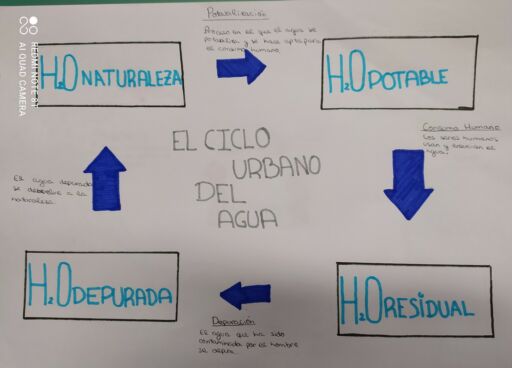 Potabilización
Proceso en el que el agua se
potabiliza y se hace apta para
el consumo humano.
H₂O NATURALEZA
H₂O POTABLE
Consumo Humano
Los seres humanos
usan y ensucian el
agua.
EL CICLO
URBANO
DEL
AGUA
El agua depurada
se devuelve a la
naturaleza
H₂O DEPURADA
H₂O RESIDUAL
Depuración
El agua que ha sido
contaminada por el hombre
se depura
REDMI NOTE 8T
AI QUAD CAMERA